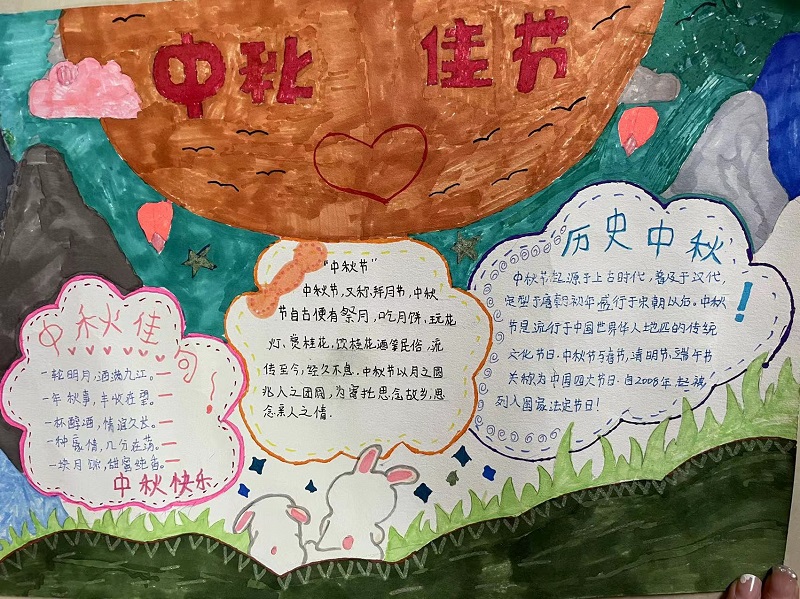 中秋 佳节
中秋佳句!
一轮明月,洒满九江。
一年秋事,丰收在望。
一杯醇酒,情谊久长。
一种亲情,几分在荡。
一块月饼,甜蜜绝佳。
中秋快乐
“中秋节”
中秋节,又称拜月节,中秋
节自古便有祭月,吃月饼、玩花
灯、赏桂花、饮桂花酒等民俗,流
传至今,经久不息.中秋节以月之圆
兆人之团圆,为寄托思念故乡,思
念亲人之情.
历史中秋!
中秋节起源于上古时代,普及于汉代,
定型于唐朝初年,盛行于宋朝以后.中秋
节是流行于中国世界华人地区的传统
文化节日.中秋节与春节,清明节,端午节
并称为中国四大节日.自2008年起被
列入国家法定节日!